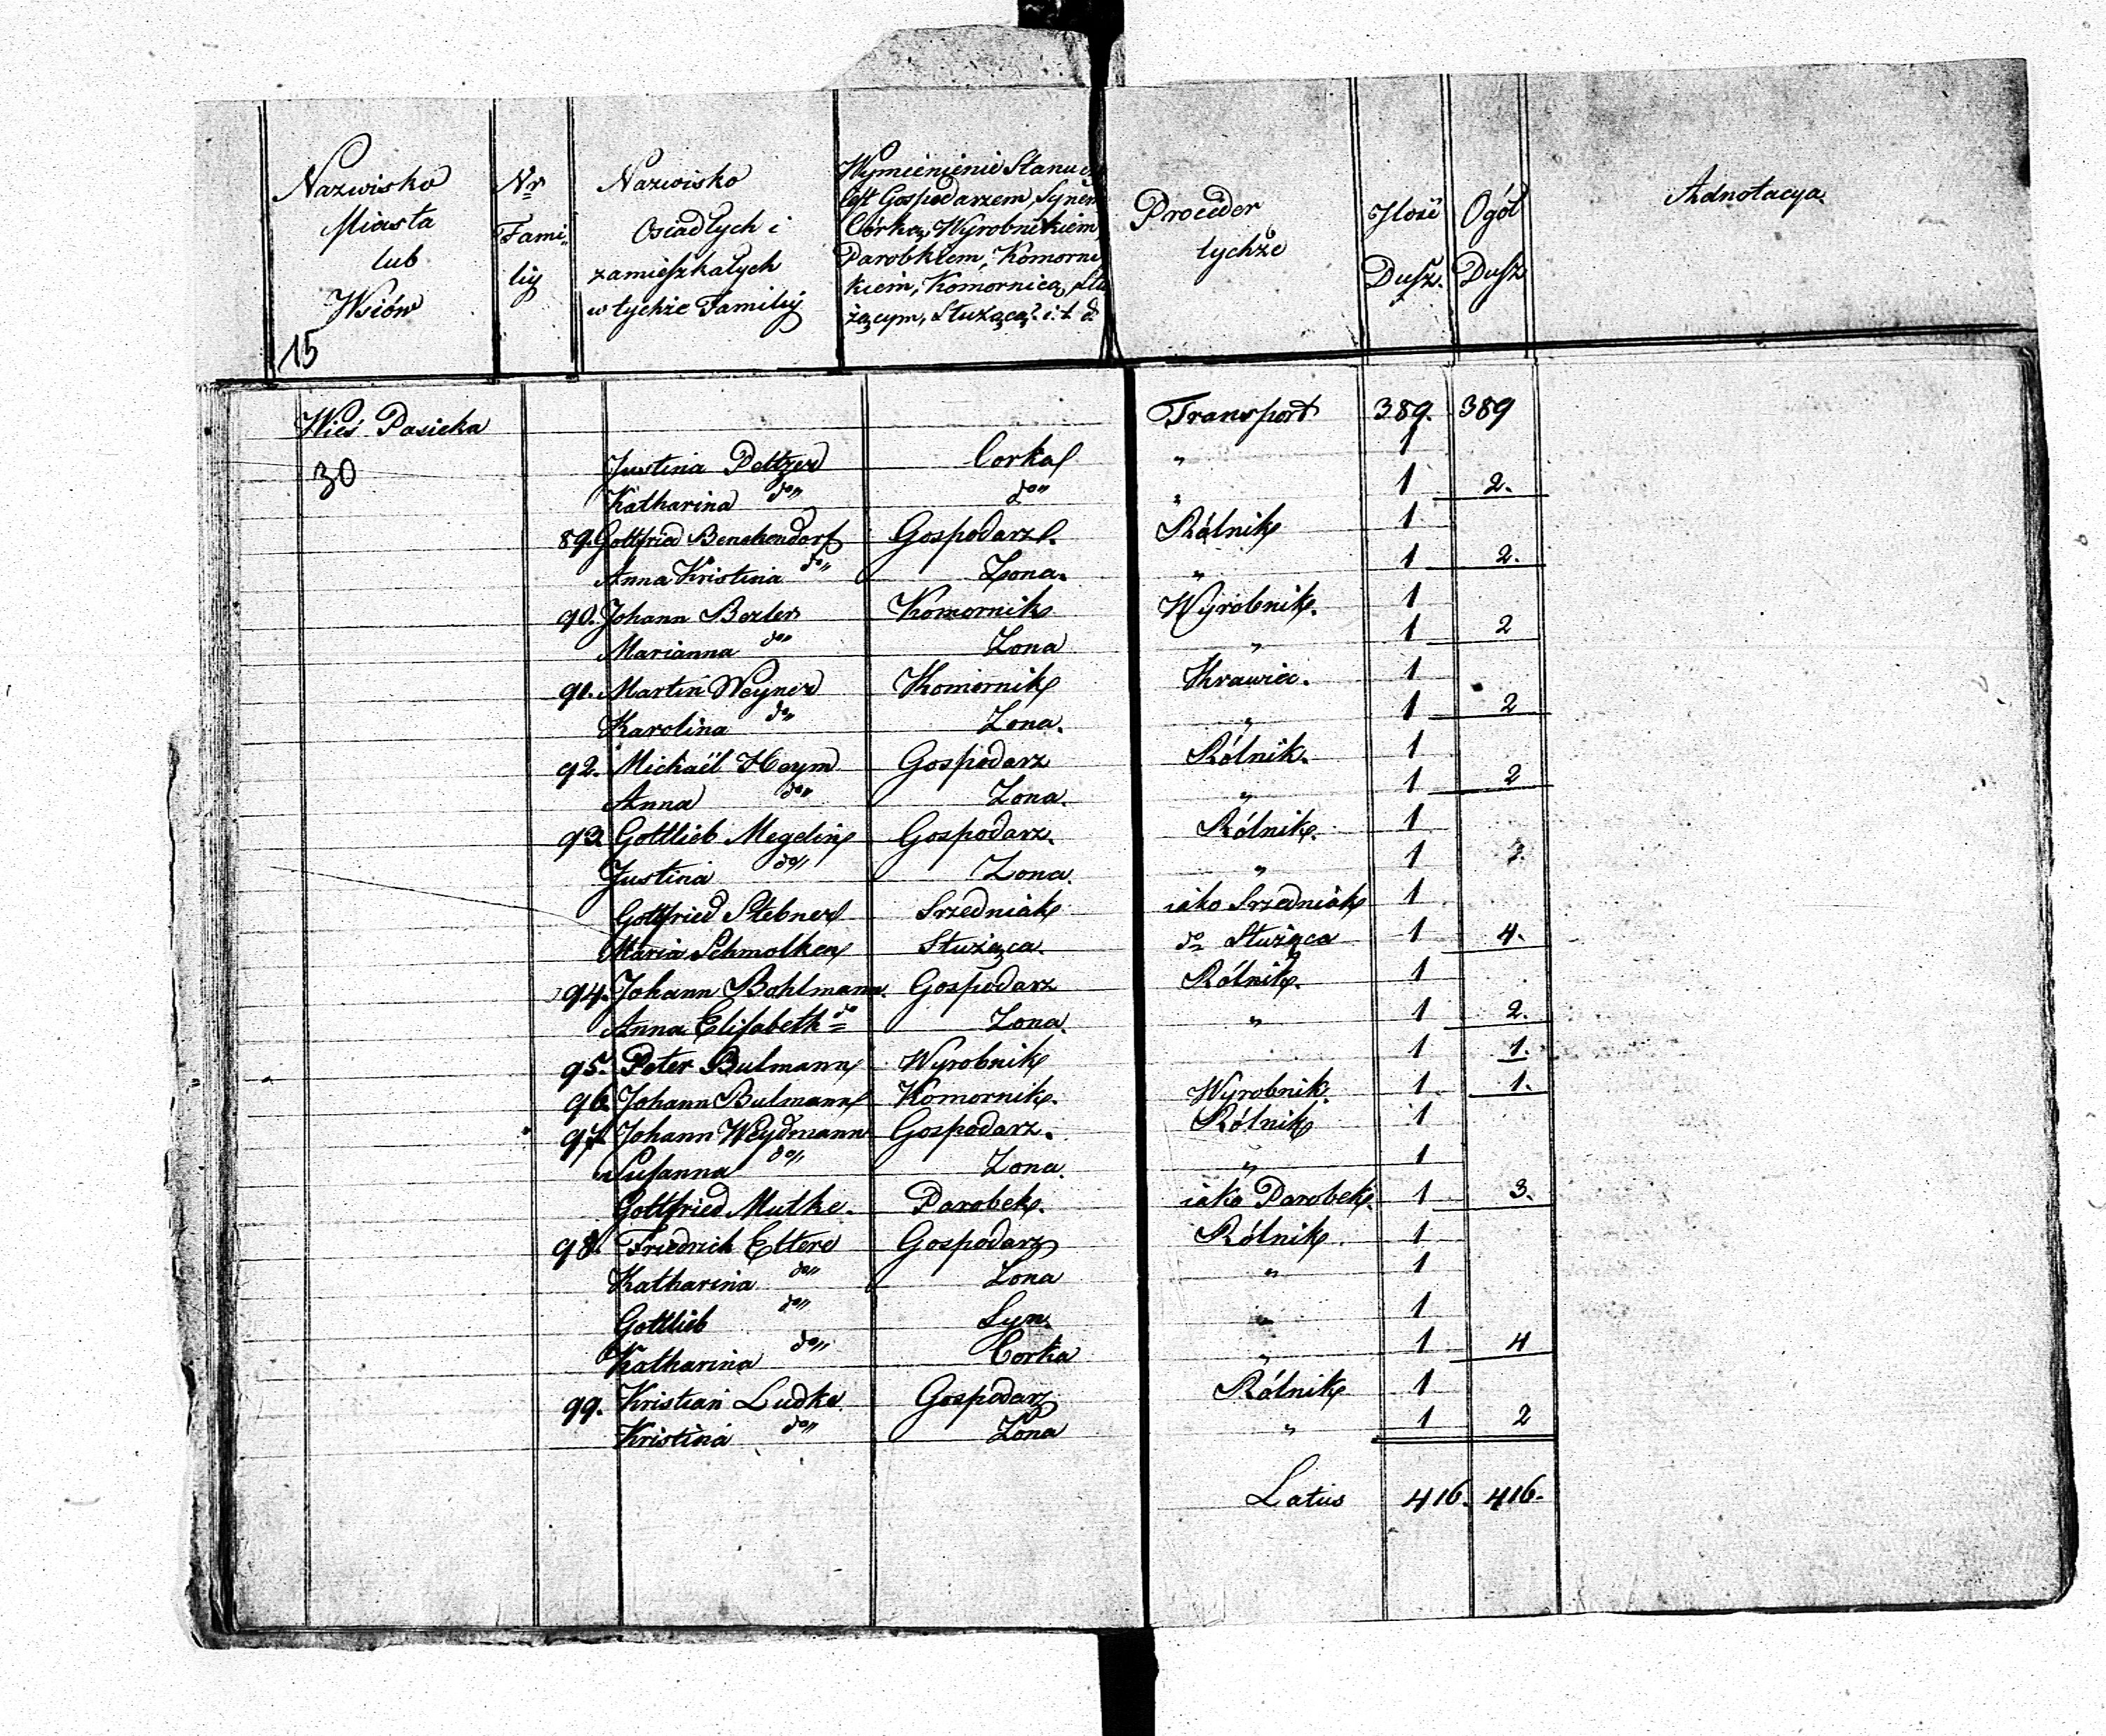 Nazwisko
Miasta
lub
Wsiów
15
Nr
Fami-
lij
Nazwisko
Osiadłych i
zamieszkałych
w tychże Familij
Wymienienie Stanu
Gospodarzem, Synem
Córką, Wyrobnikiem
Parobkiem, Komorni
kiem, Komornicą, Słu
żącym, Służącą i. t. d
Proceder
tychże
Jlość
Dusz.
Ogół
Dusz
Adnotacya.
Wieś Pasieka Transport 389. 389
30 Justina Peltzer Corka " 1
Katharina do" do" " 1 2.
89. Gottfried Benekendorf Gospodarz. Rólnik 1
Anna Kristina do" Zona. " 1 2.
90. Johann Bezler Komornik Wyrobnik. 1
Marianna do" Zona " 1 2
91. Martin Weyner Komornik Krawiec. 1
Karolina do" Zona. " 1 2
92. Michaël Heym Gospodarz Rólnik. 1
Anna do" Zona. " 1 2
93 Gottlieb Megelin Gospodarz. Rólnik. 1
Justina do" Zona. " 1
Gottfried Stebner Srzedniak iako Srzedniak 1
Maria Schmolken Służąca. do Służąca 1 4.
94. Johann Bahlmann. Gospodarz Rólnik. 1
Anna Elisabeth do Zona. " 1 2.
95. Peter Bulmann Wyrobnik 1 1.
96. Johann Bulmann Komornik. Wyrobnik. 1 1.
97. Johann Weydmann Gospodarz. Rólnik 1
Susanna do" Zona " 1
Gottfried Mutke. Parobek. iako Parobek. 1 3.
98. Friedrich Etter Gospodarz Rólnik. 1
Katharina do" Zona " 1
Gottlieb do" Syn. " 1
Katharina do" Corka " 1 4
99. Kristian Ludke Gospodarz Rólnik 1
Kristina do" Zona " 1 2
Latus 416. 416.